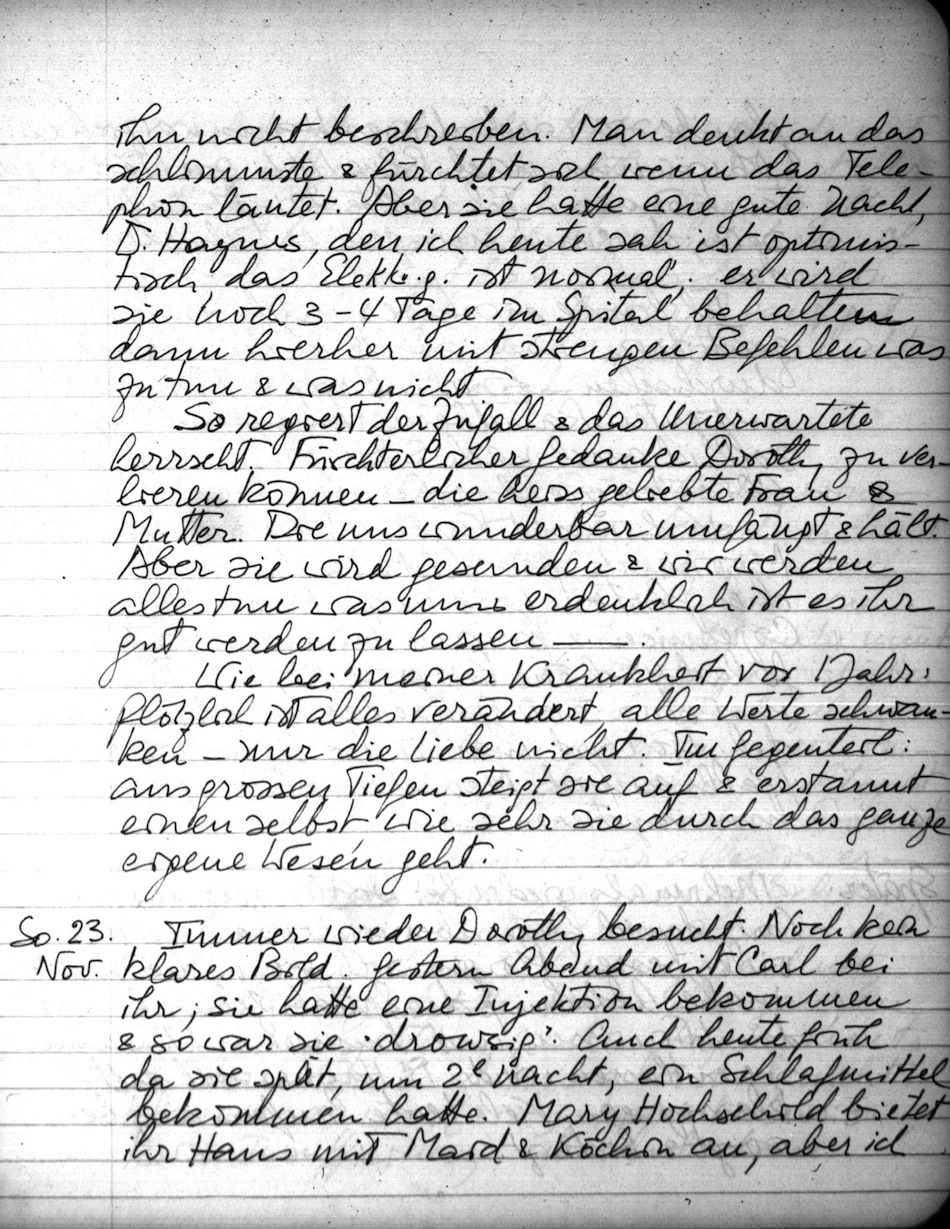 ihn nicht beschreiben. Man denkt an das
schlimmste & fürchtet sich wenn das Tele-
phon läutet. Aber sie hatte eine gute Nacht,
D. Haynes, den ich heute sah ist optimis-
tisch, das Elektr.g. ist normal, er wird
sie noch 3-4 Tage im Spital behalten
dann hierher mit strengen Befehlen was
zu tun & was nicht
So regiert der Zufall & das Unerwartete
herrscht. Fürchterlicher Gedanke Dorothy zu ver-
lieren können – die heiss geliebte Frau &
Mutter. Die uns wunderbar umfängt & hält.
Aber sie wird gesunden & wir werden
alles tun was uns erdenklich ist es ihr
gut werden zu lassen —
Wie bei meiner Krankheit vor 1 Jahr:
Plötzlich ist alles verändert, alle Werte schwan-
ken – nur die Liebe nicht. Im Gegenteil:
aus grossen Tiefen steigt sie auf & erstaunt
einen selbst wie sehr sie durch das ganze
eigene Wesen geht.
So. 23. Immer wieder Dorothy besucht. Noch kein
Nov. klares Bild. Gestern Abend mit Carl bei
ihr; sie hatte eine Injektion bekommen
& so war sie "drowsig". Auch heute früh
da sie spät, um 2e Nacht, ein Schlafmittel
bekommen hatte. Mary Hochschild bietet
ihr Haus mit Maid & Köchin an, aber ich